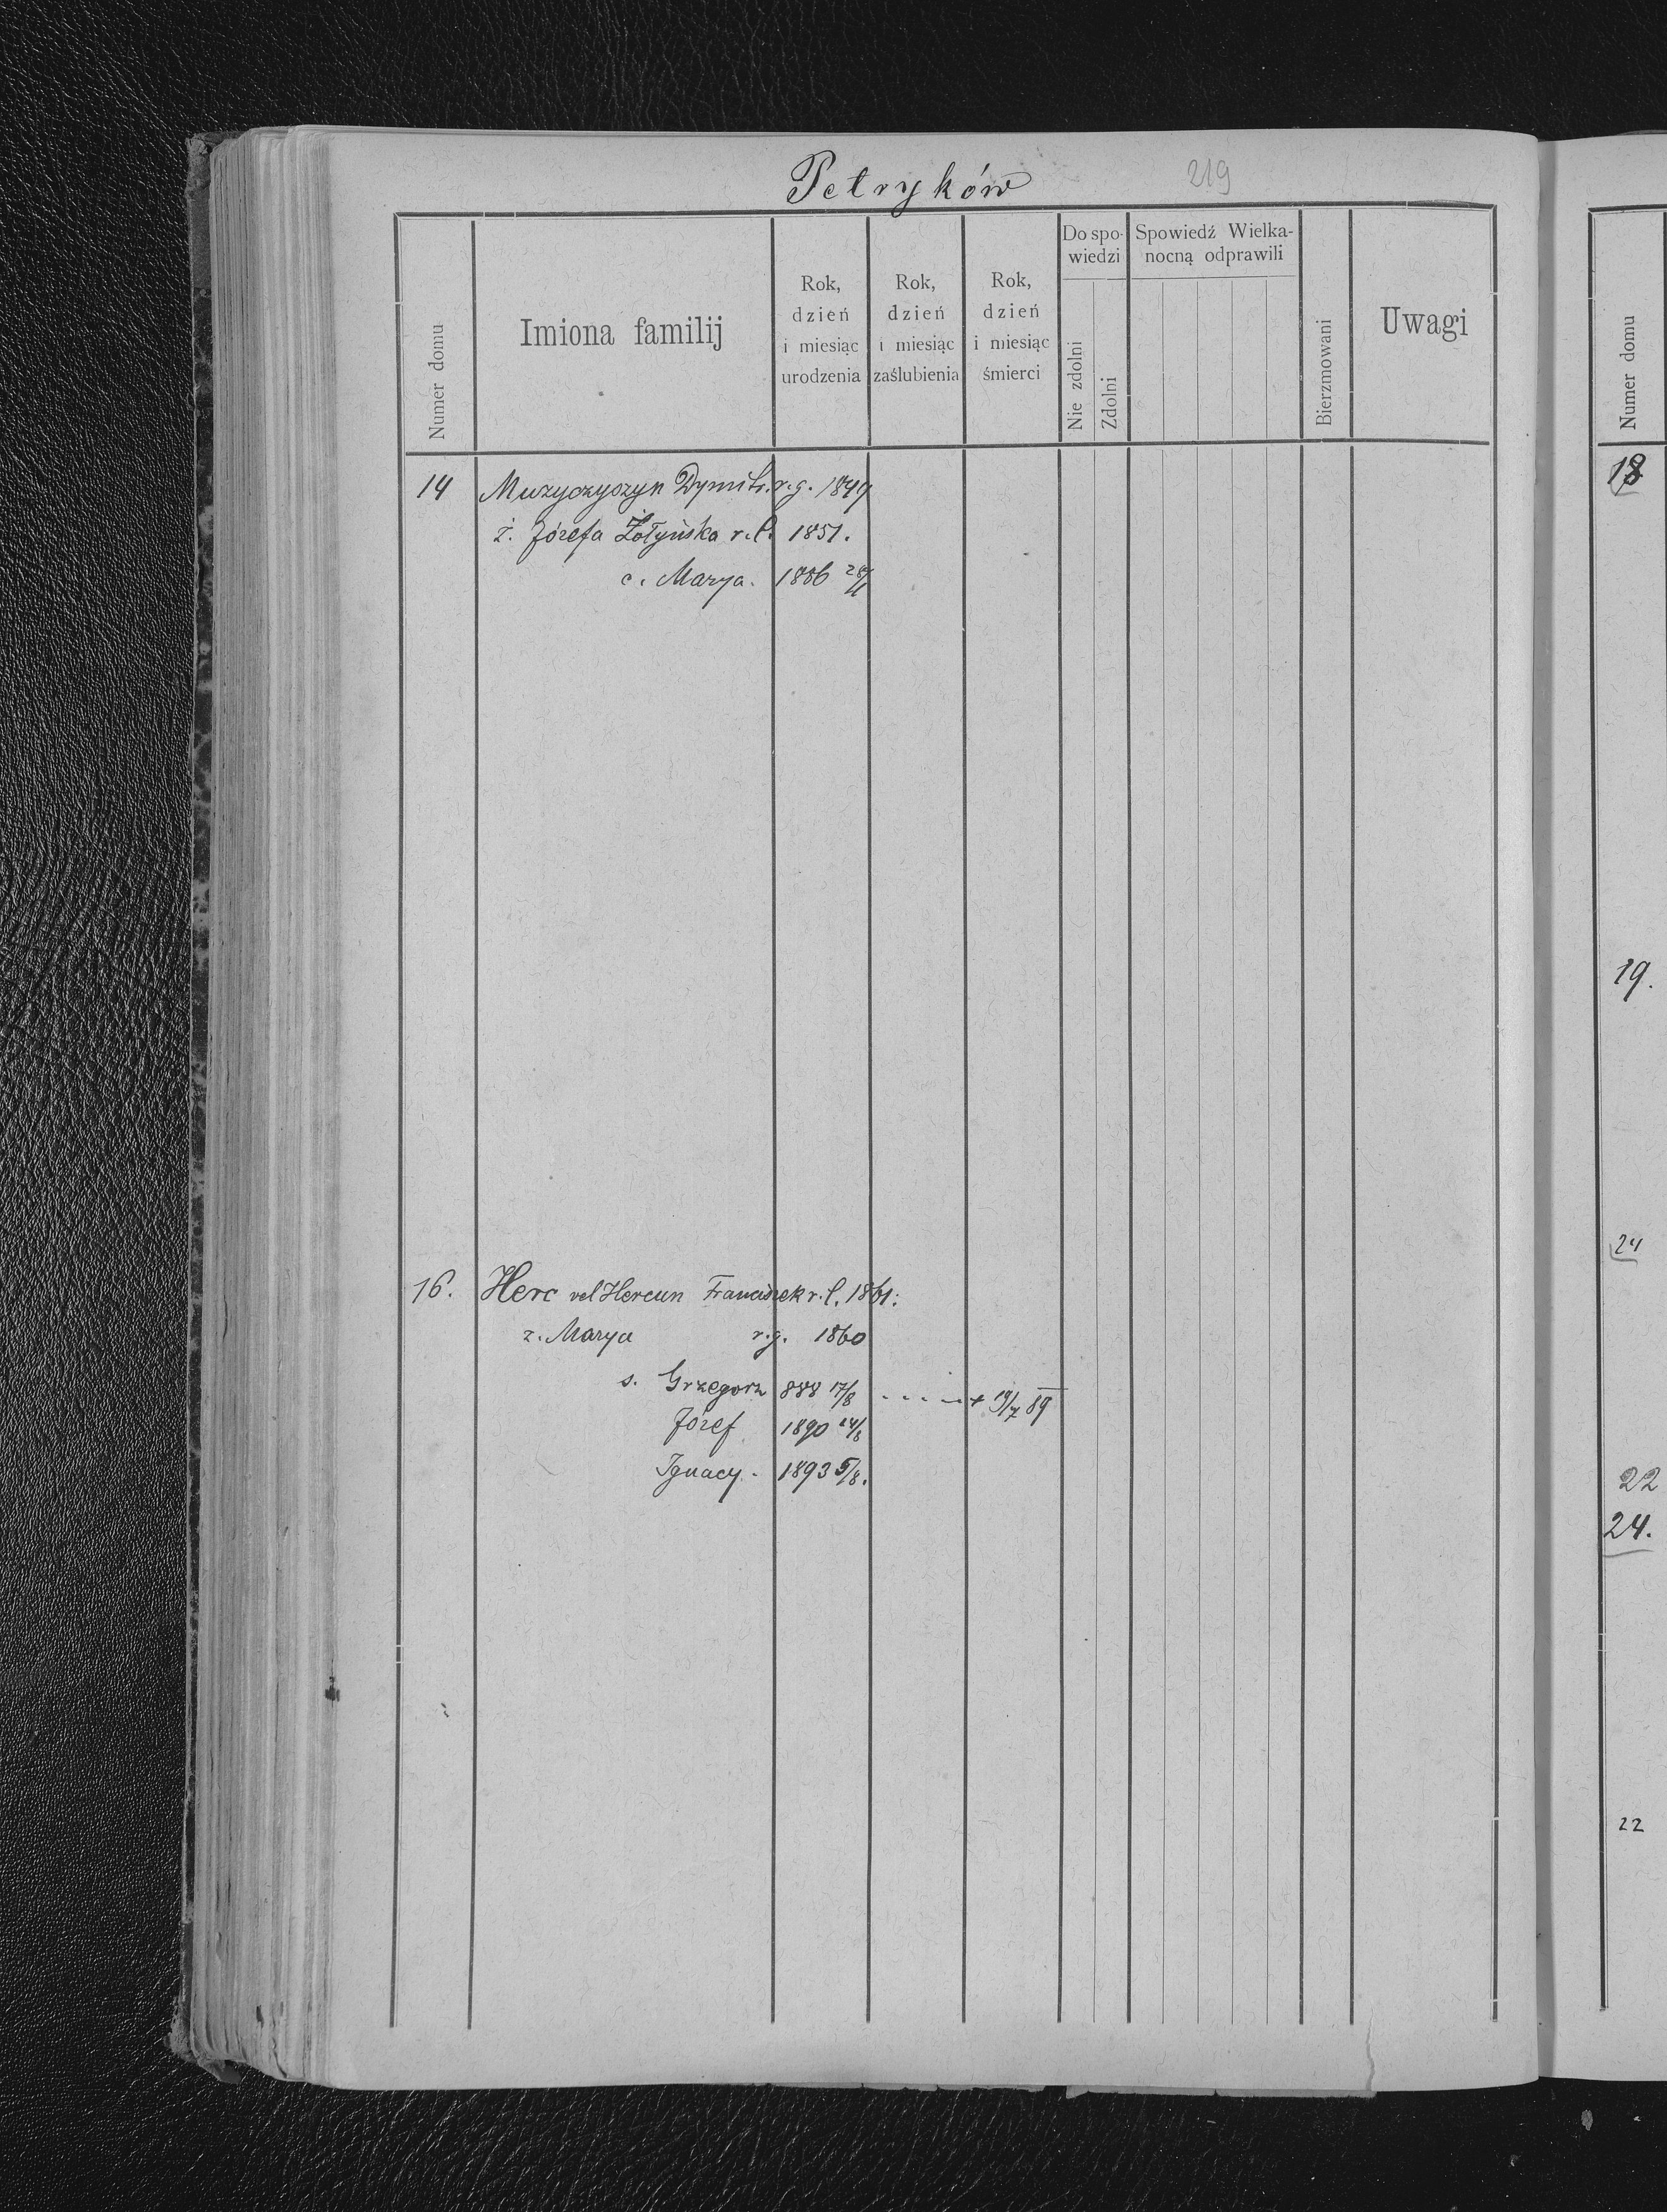 Petryków 219
Numer domu
Imiona familij
Rok, dzień i miesiąc urodzenia
Rok, dzień i miesiąc zaślubienia
Rok, dzień i miesiąc śmierci
Do spowiedzi
Nie zdolni
Zdolni
Spowiedź Wielkanocną odprawili
Bierzmowani
Uwagi
Numer domu
14 Muzyczyszyn Dymitr. r.g. 1849
ż. Józefa Żołyńska r.l. 1851.
c. Marya. 1886
16. Herc vel Hercun Franciszek r.l. 1861.
ż. Marya r.g. 1860
s. Grzegorz 888 17/8 + 19/7 89
Józef 1890 24/8
Ignacy. 1893 5/8.
18
19.
22
24.
22